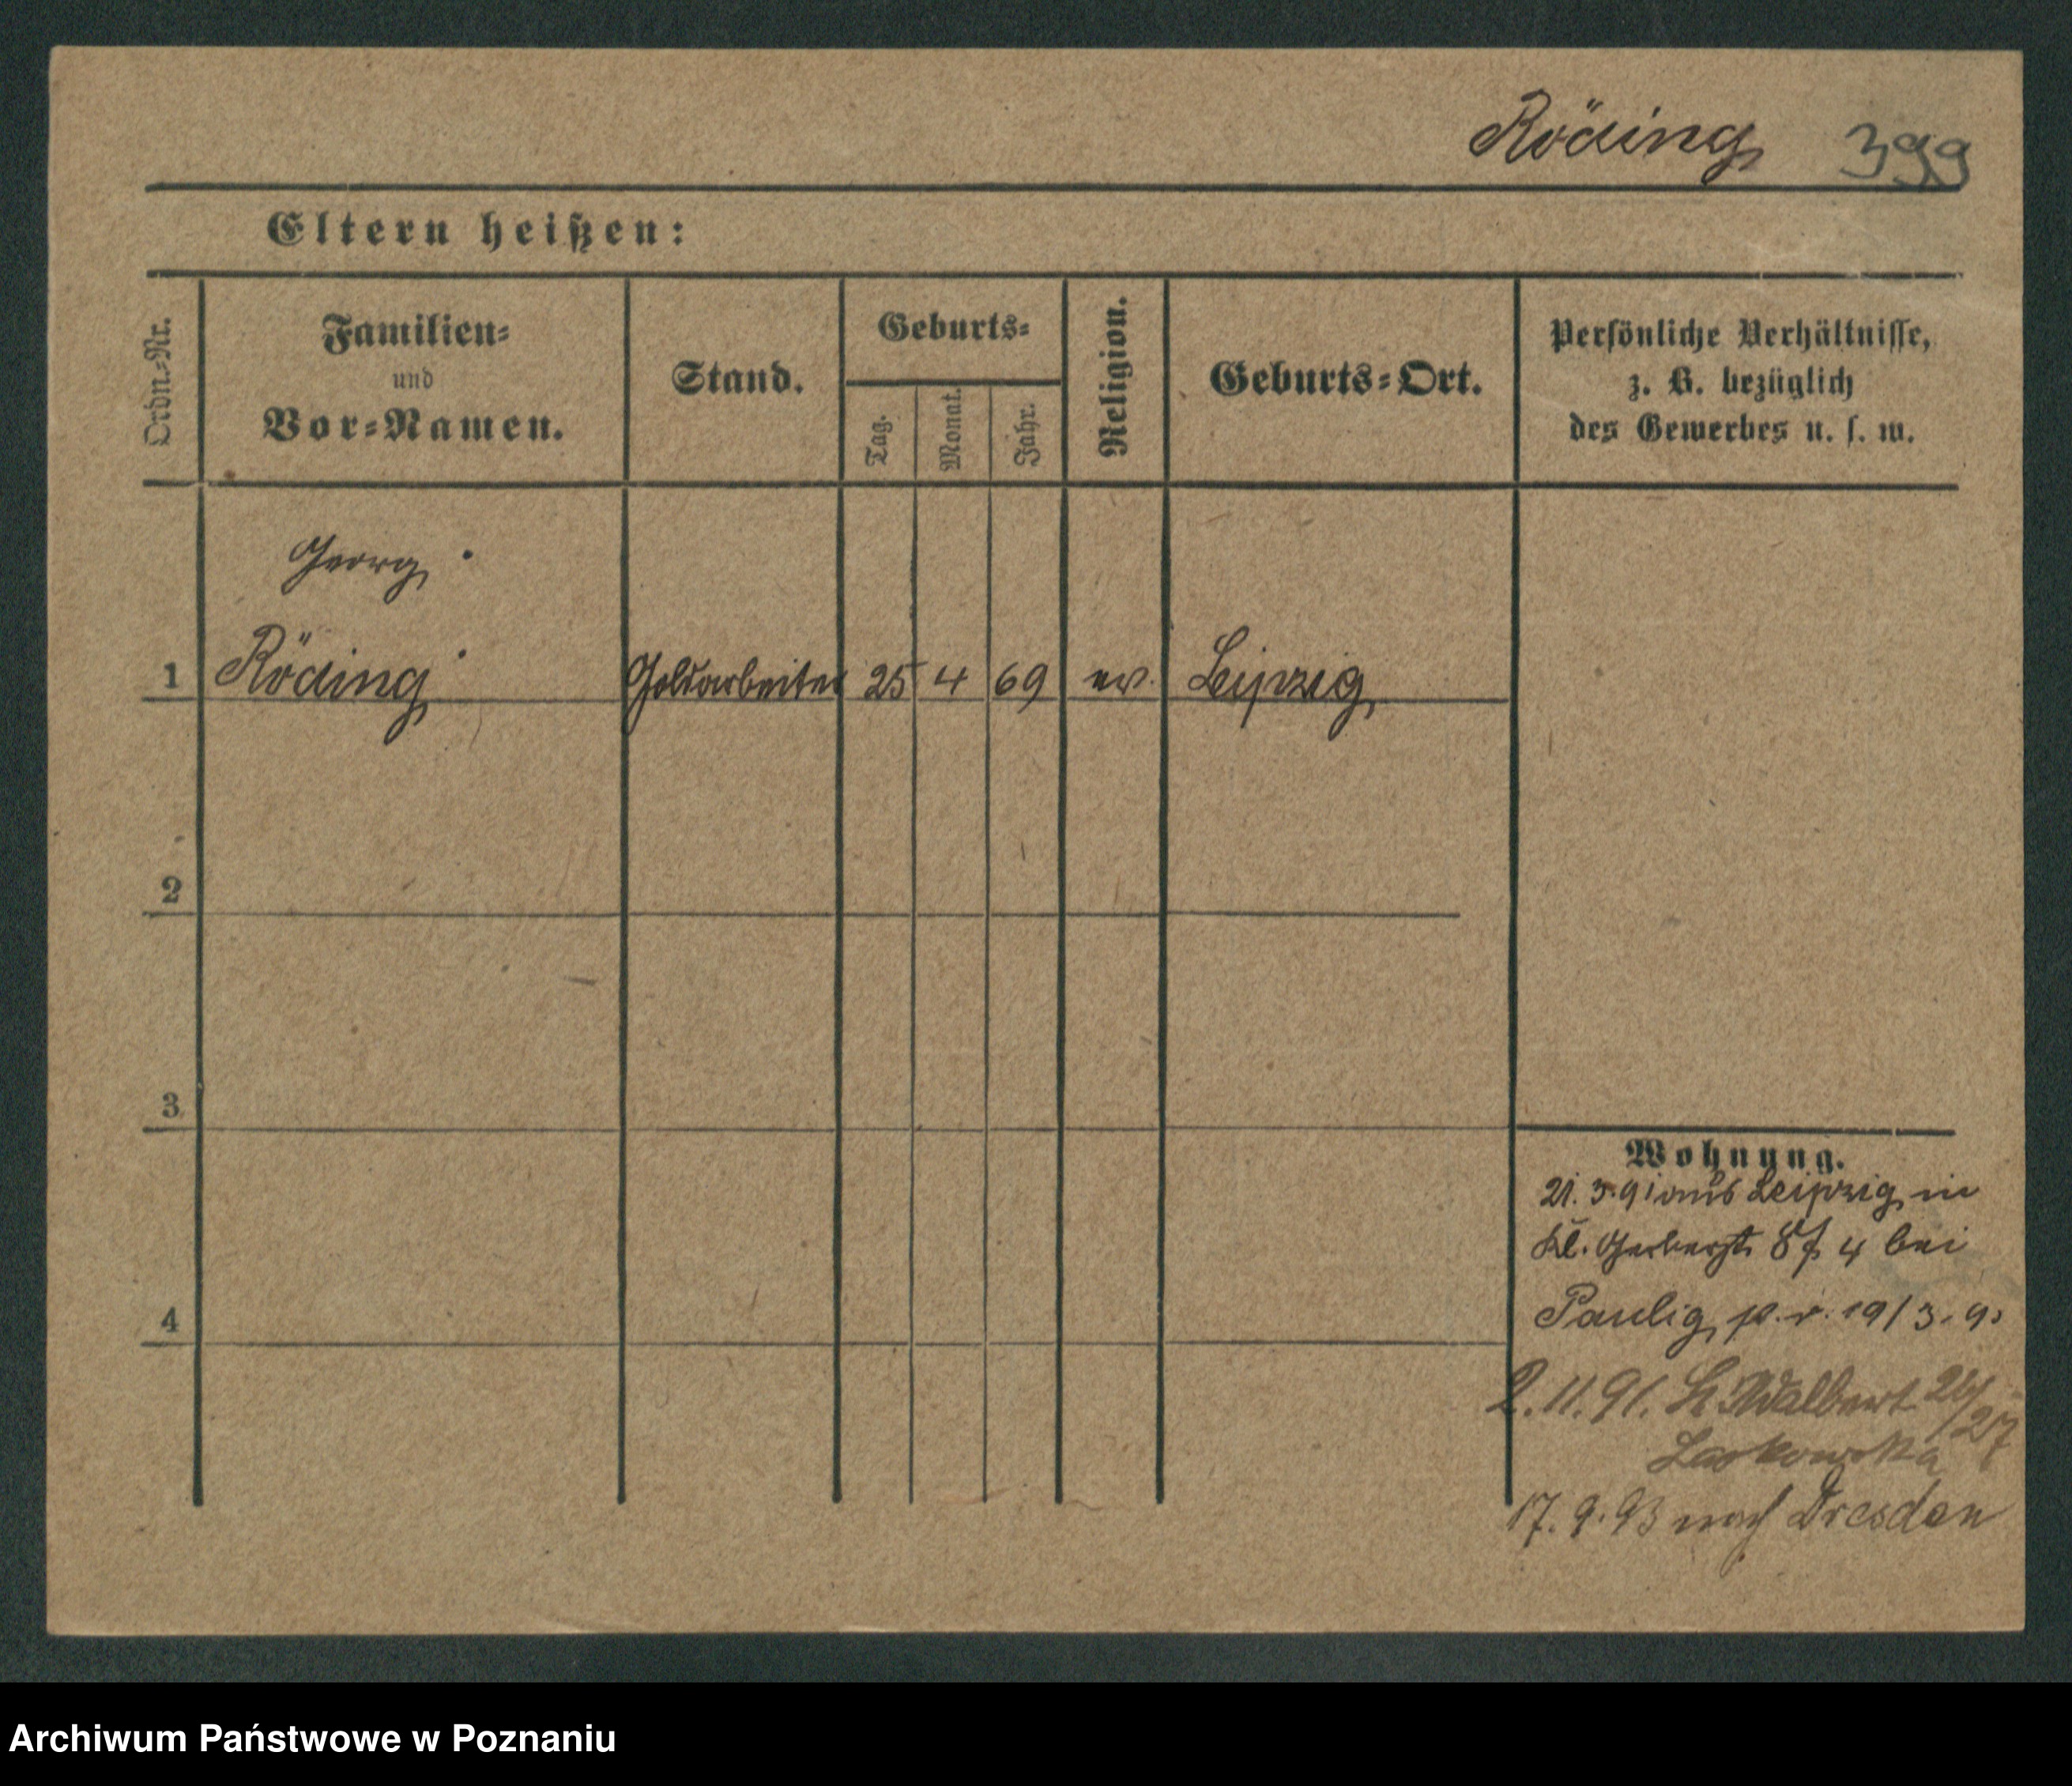 Röding 399
Eltern heißen:
Ordn.-Nr.
Familien-
und
Vor-Namen.
Stand.
Geburts-
Tag.
Monat.
Jahr.
Religion.
Geburts-Ort.
Persönliche Verhältnisse,
z. B. bezüglich
des Gewerbes u. s. w.
Georg
1 Röding Goldarbeiter 25 4 69 ev. Leipzig
2
3
4
Wohnung.
21. 3. 91 aus Leipzig in
Kl. Gerberst. 8 4 bei
Paulig p. r. 19/3. 91
2. 11. 91. St Adalbert 26/27
Laskowska
17. 9. 93 nach Dresden
Archiwum Państwowe w Poznaniu